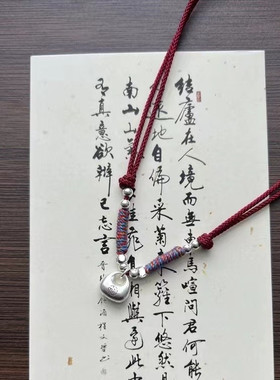 结廬在人境而無馬喧問君何能
遠地自偏采菊東籬下悠然見
南山山氣佳飛鳥相與還此中
有真意欲辨已忘言